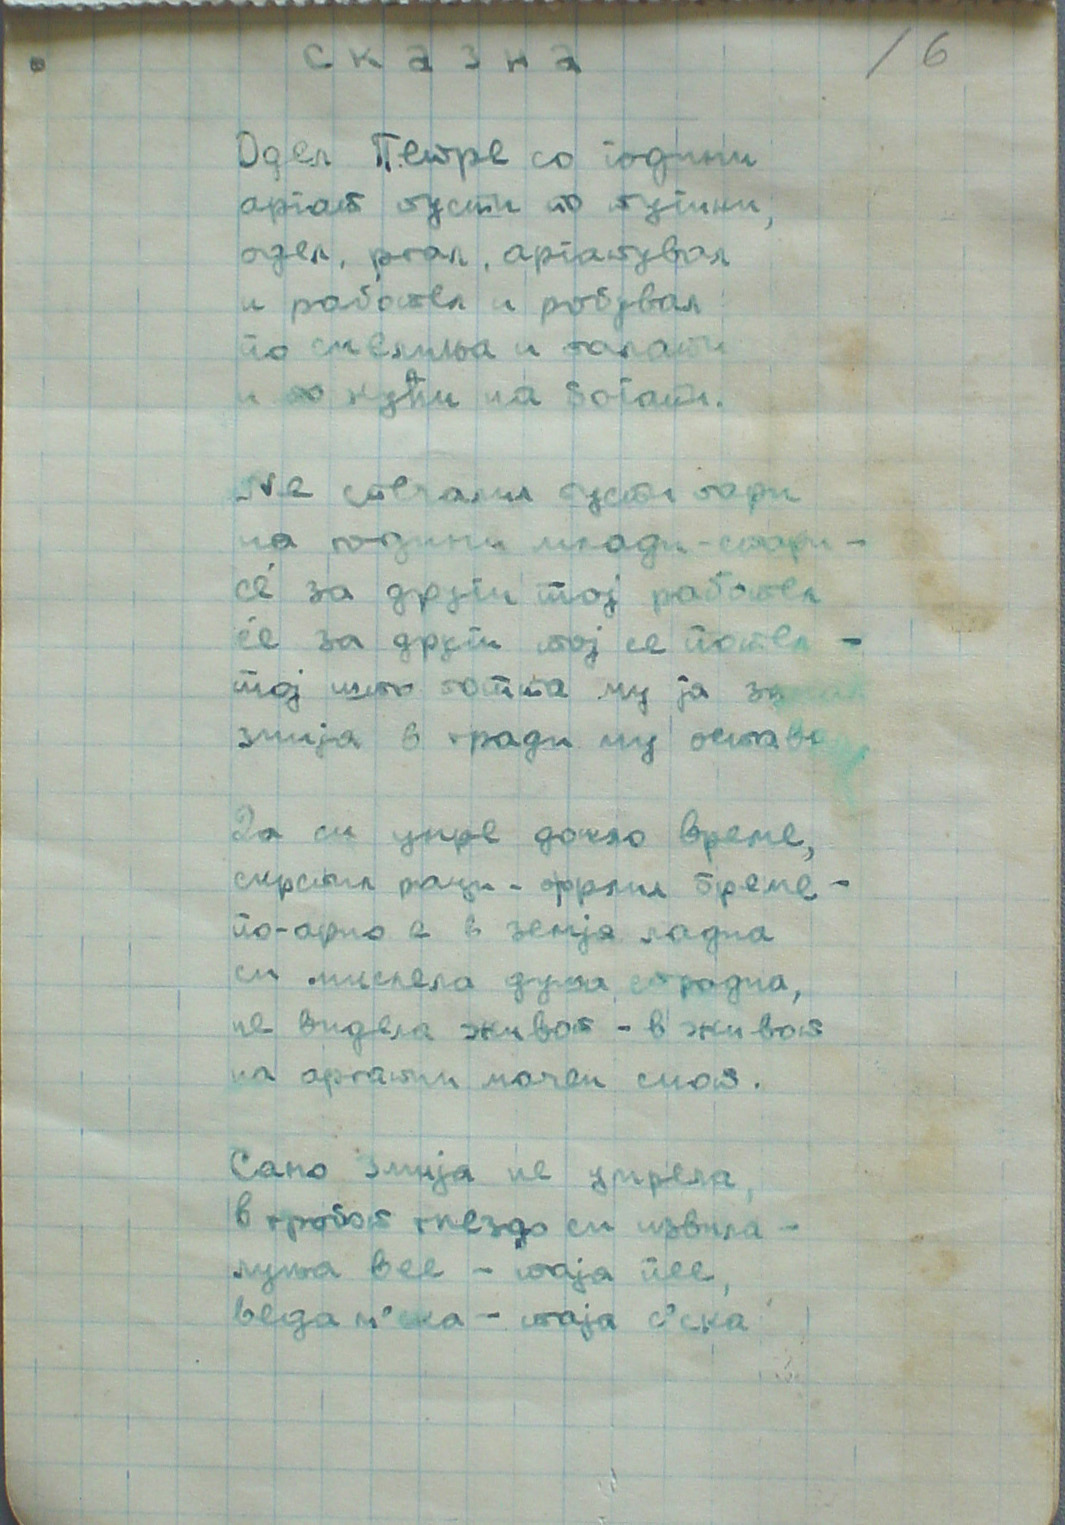 сказна
16
Одел Петре со години
аргат пусти по путини,
одел, ргал, аргатувал
и работел и робувал
по сиелиња и палати
и по куќи на богати.
Не спечалил пусти пари
на години млади-стари-
сé за други тој работел
сé за други тој се потел -
тој што почна му ја
змија в гради му
Да си умре дошло време,
скрстил раци - фрлил бреме -
по-арно е в земја ладна
си мислела душа страдна,
не видела живот - в живот
на аргатин мачен скот.
Само змија не умрела,
в гробот гнездо си извила -
луња вее - таја пее,
веда м'ска - таја с'ска